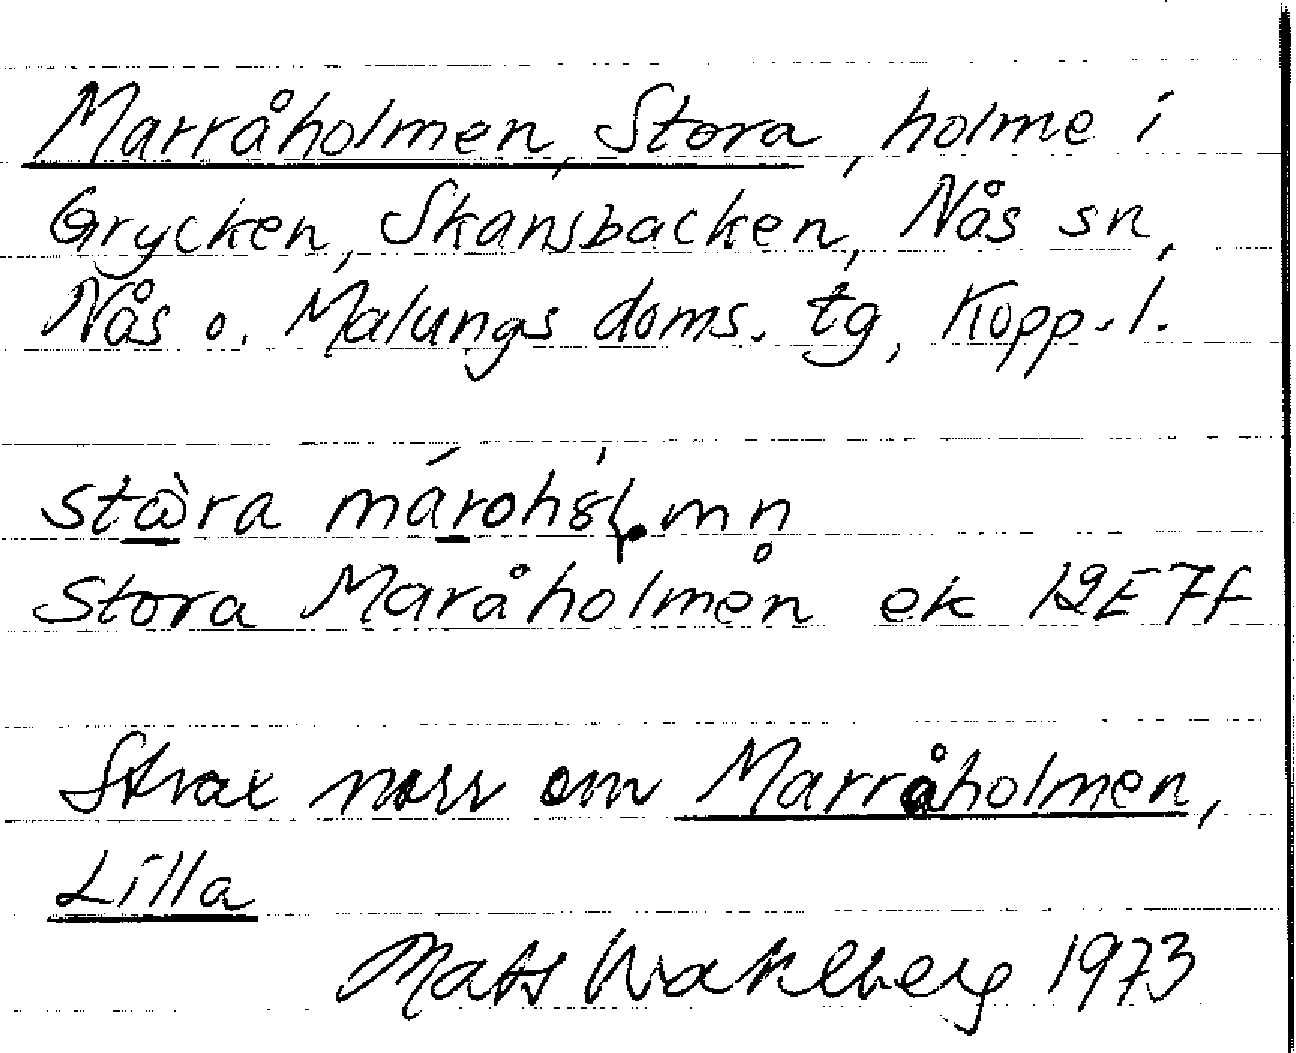 Marråholmen, Stora, holme i
Grycken, Skansbacken, Nås sn,
Nås o. Malungs doms. tg, Kopp. l.
stora
Stora Maråholmen ek 12E7f
Strax norr om Marråholmen,
Lilla
Mats Wahlberg 1973